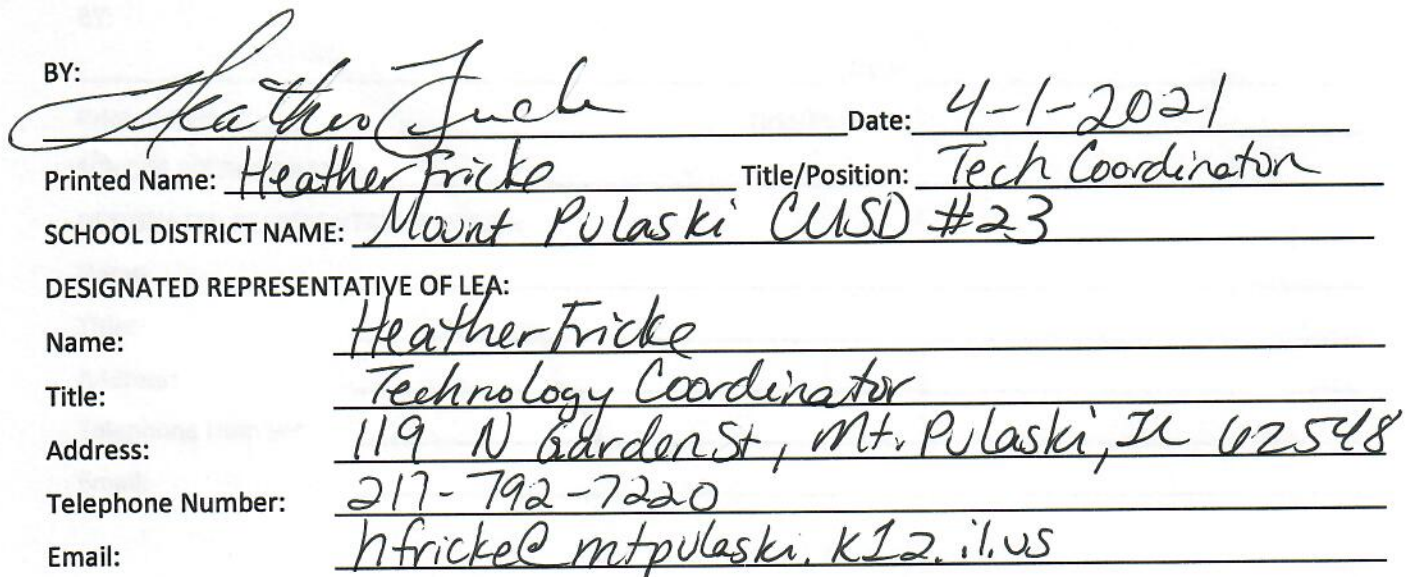 BY: Heather Fricke Date: 4-1-2021
Printed Name: Heather Fricke Title/Position: Tech Coordinator
SCHOOL DISTRICT NAME: Mount Pulaski CUSD #23
DESIGNATED REPRESENTATIVE OF LEA:
Name: Heather Fricke
Title: Technology Coordinator
Address: 119 N Garden St, Mt. Pulaski, IL 62548
Telephone Number: 217-792-7220
Email: hfricke@mtpulaski.k12.il.us